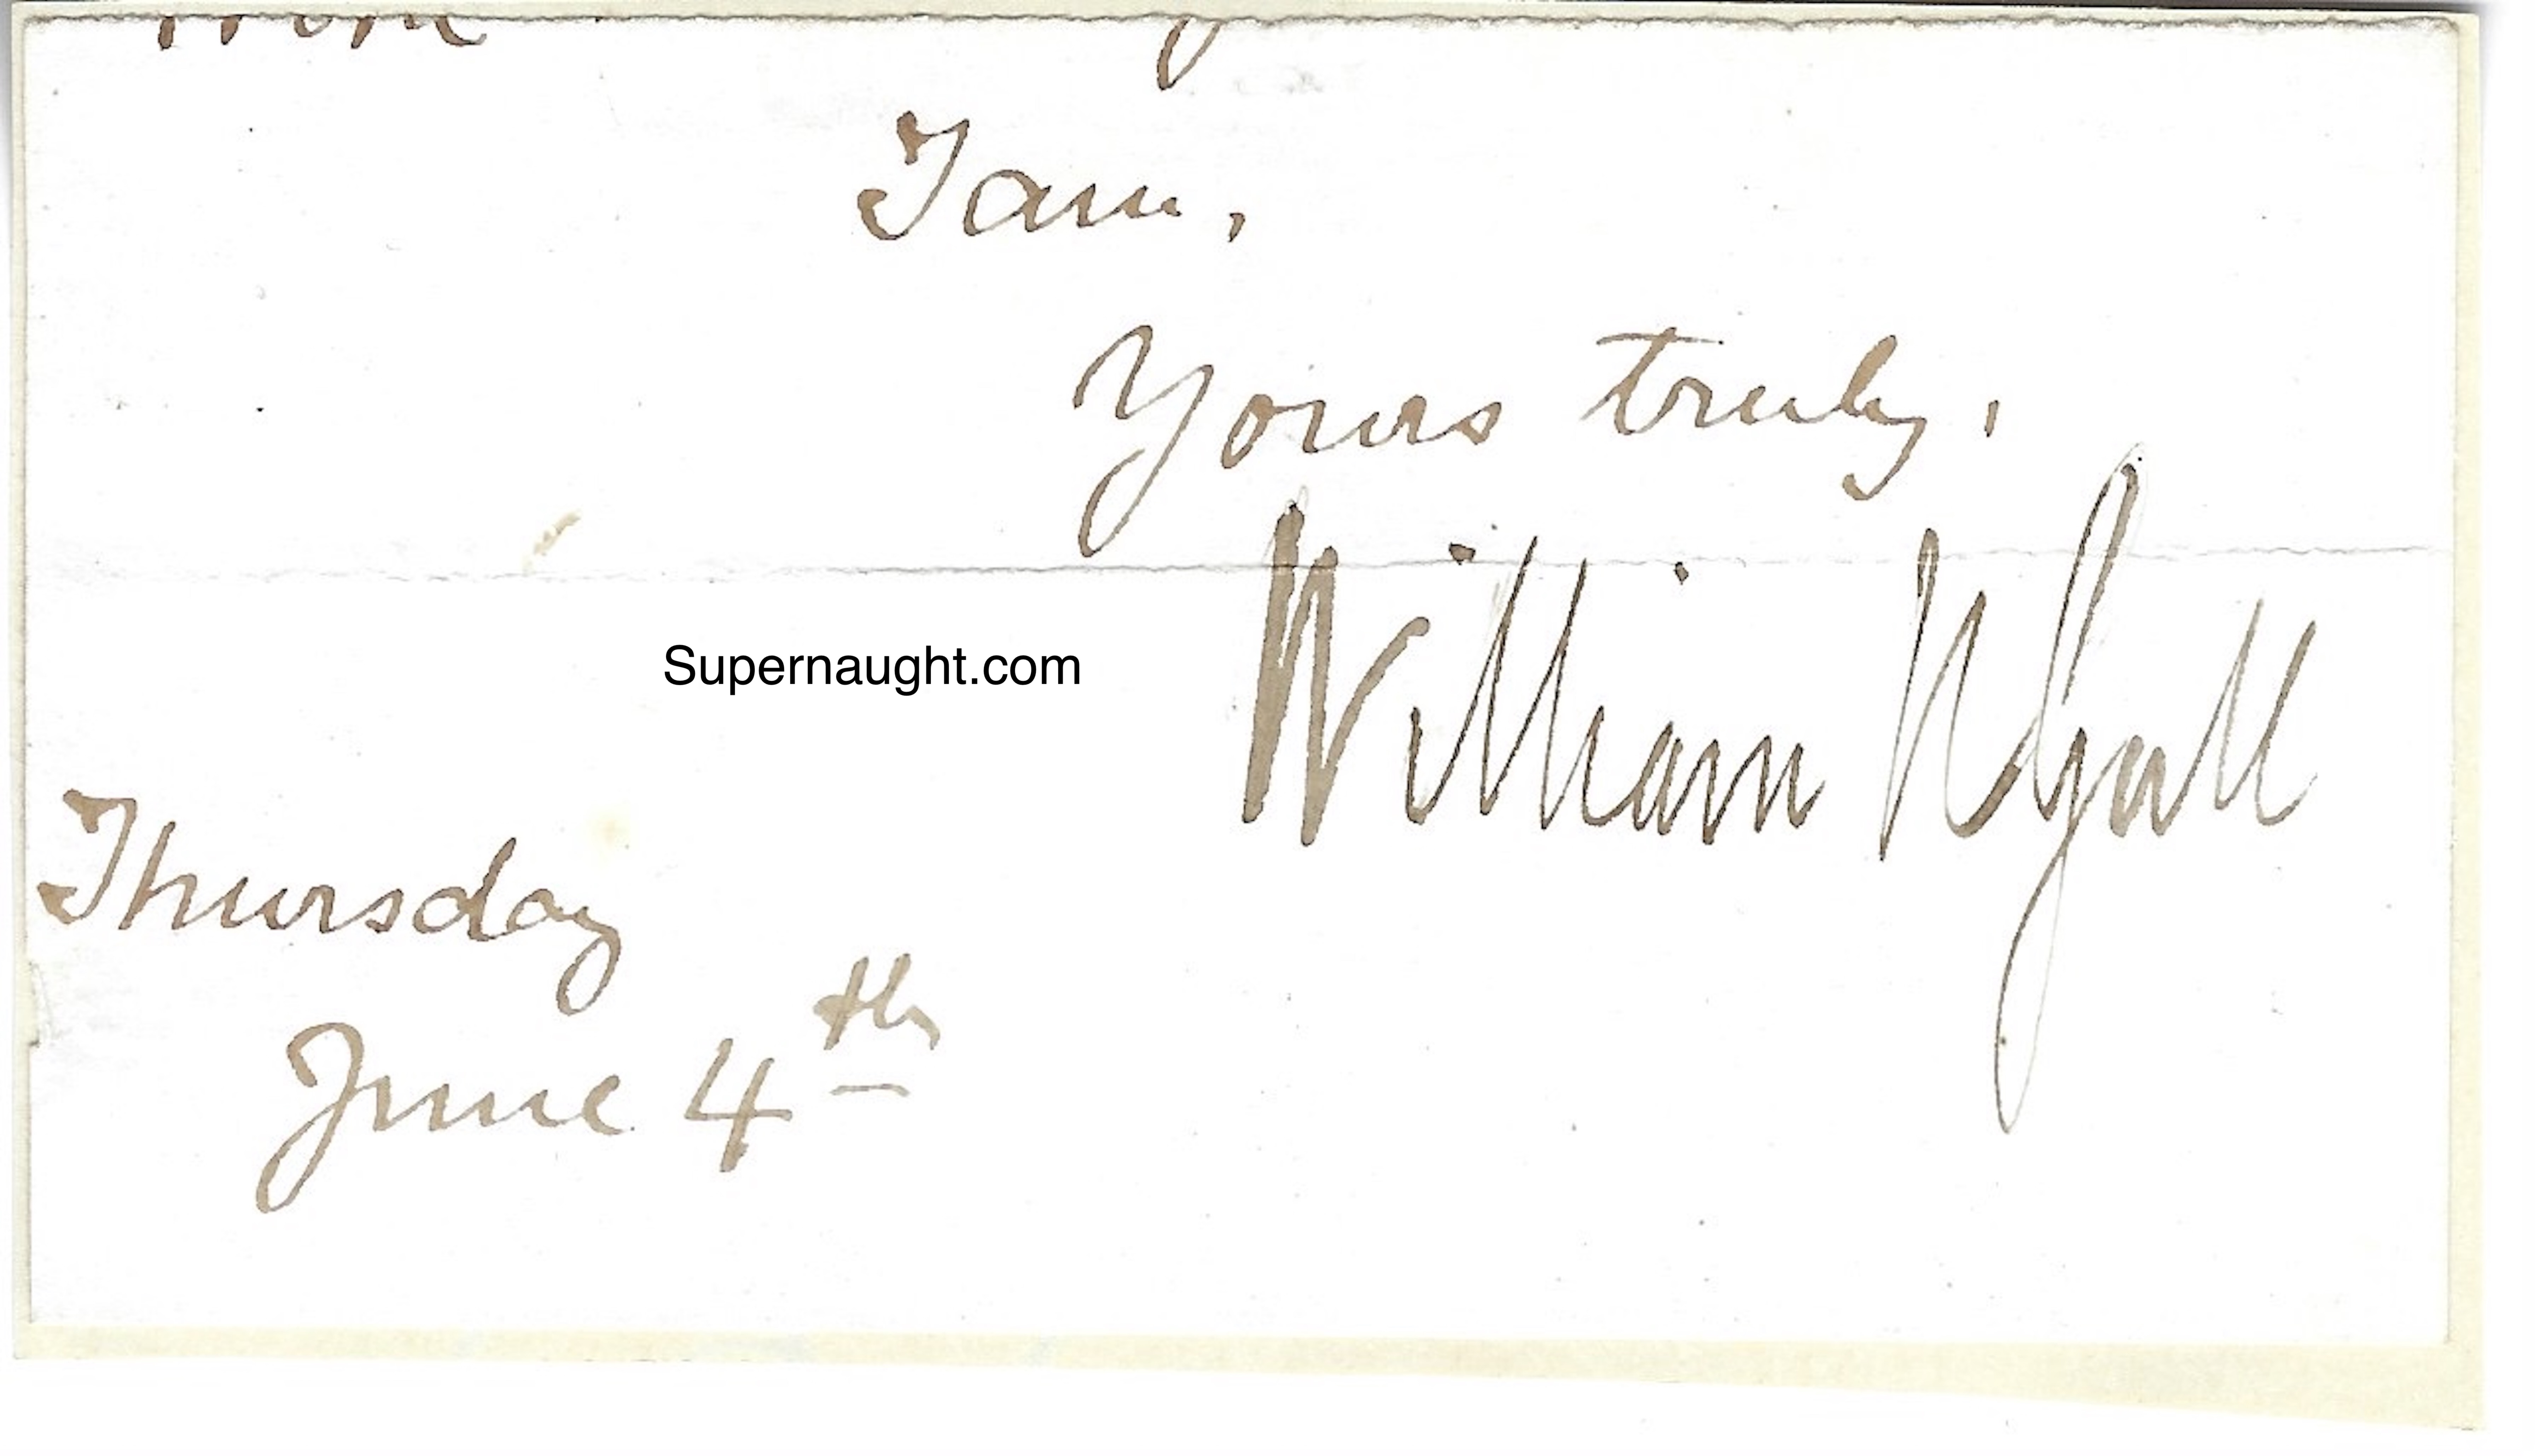 I am,
Yours truly,
William Wyatt
Supernaught.com
Thursday
June 4th